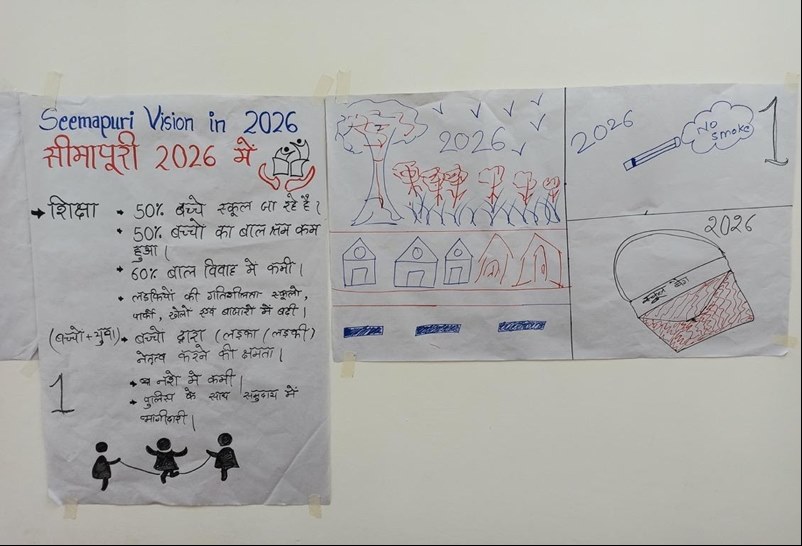 Seemapuri Vision in 2026
सीमापूरी 2026 में
→ शिक्षा • 50% बच्चे स्कूल जा रहे हैं।
• 50% बच्चों का बाल श्रम कम
हुआ।
• 60% बाल विवाह में कमी।
• लड़कियों की गतिशीलता स्कूलों,
पार्को, खेलों एवं बाजारों में बढ़ी।
(बच्चो + युवा) • बच्चो द्वारा (लड़का/लड़की)
नेतृत्व करने की क्षमता।
• नशे में कमी।
1
• पुलिस के साथ समुदाय में
भागीदारी।
2026
2026
No
smoke
1
2026
स्कूल बैग